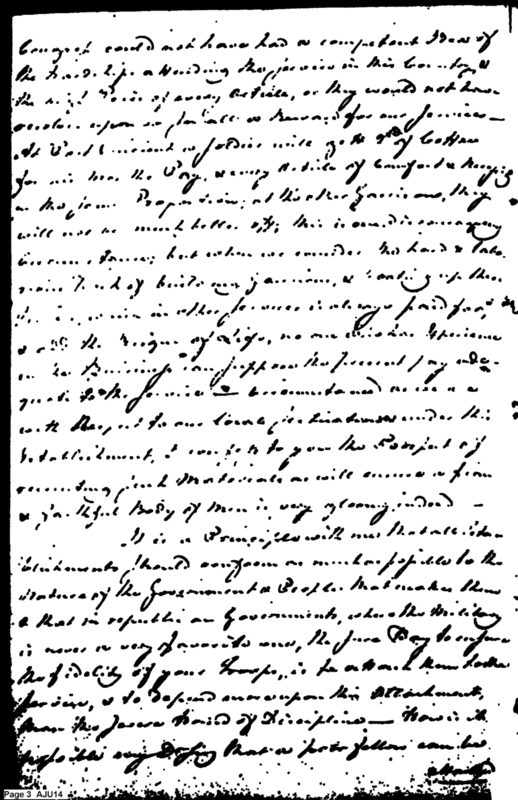 Congress could not have had a competent Idea of
the hardships attending the service in this Country &
the high Price of every Article, or they would not have
upon so small a Reward for our Services —
At Post Vincent a Soldier will get of Coffee
for his the Pay, & every Article of Comfort &
in the same Proportion; at the other Garrisons, they
will not be much better off; this is one discouraging
circumstance; but when we consider the hard & labo
rious Task of building Garrisons, &
in other Services is always paid for,
& all the of Life, no one who has Experience
in the Business can suppose the present pay ade
quate to the Service — circumstanced as we are
with Respect to our local under this
Establishment, I confess to you the Prospect of
recruiting such Materials as will ensure a firm
& faithful Body of Men is very gloomy indeed —
It is a Principle with me that all esta
blishments should conform as much as possible to the
Nature of the Government & People that makes them
& that in republican Governments, where the Military
is never a very favorite one, the sure Way to ensure
the fidelity of your Troops, is to attach them to the
Service, & to depend more upon this Attachment,
than the severe of Discipline — How is it
possible my that a poor fellow can be
Page 3 AJU14